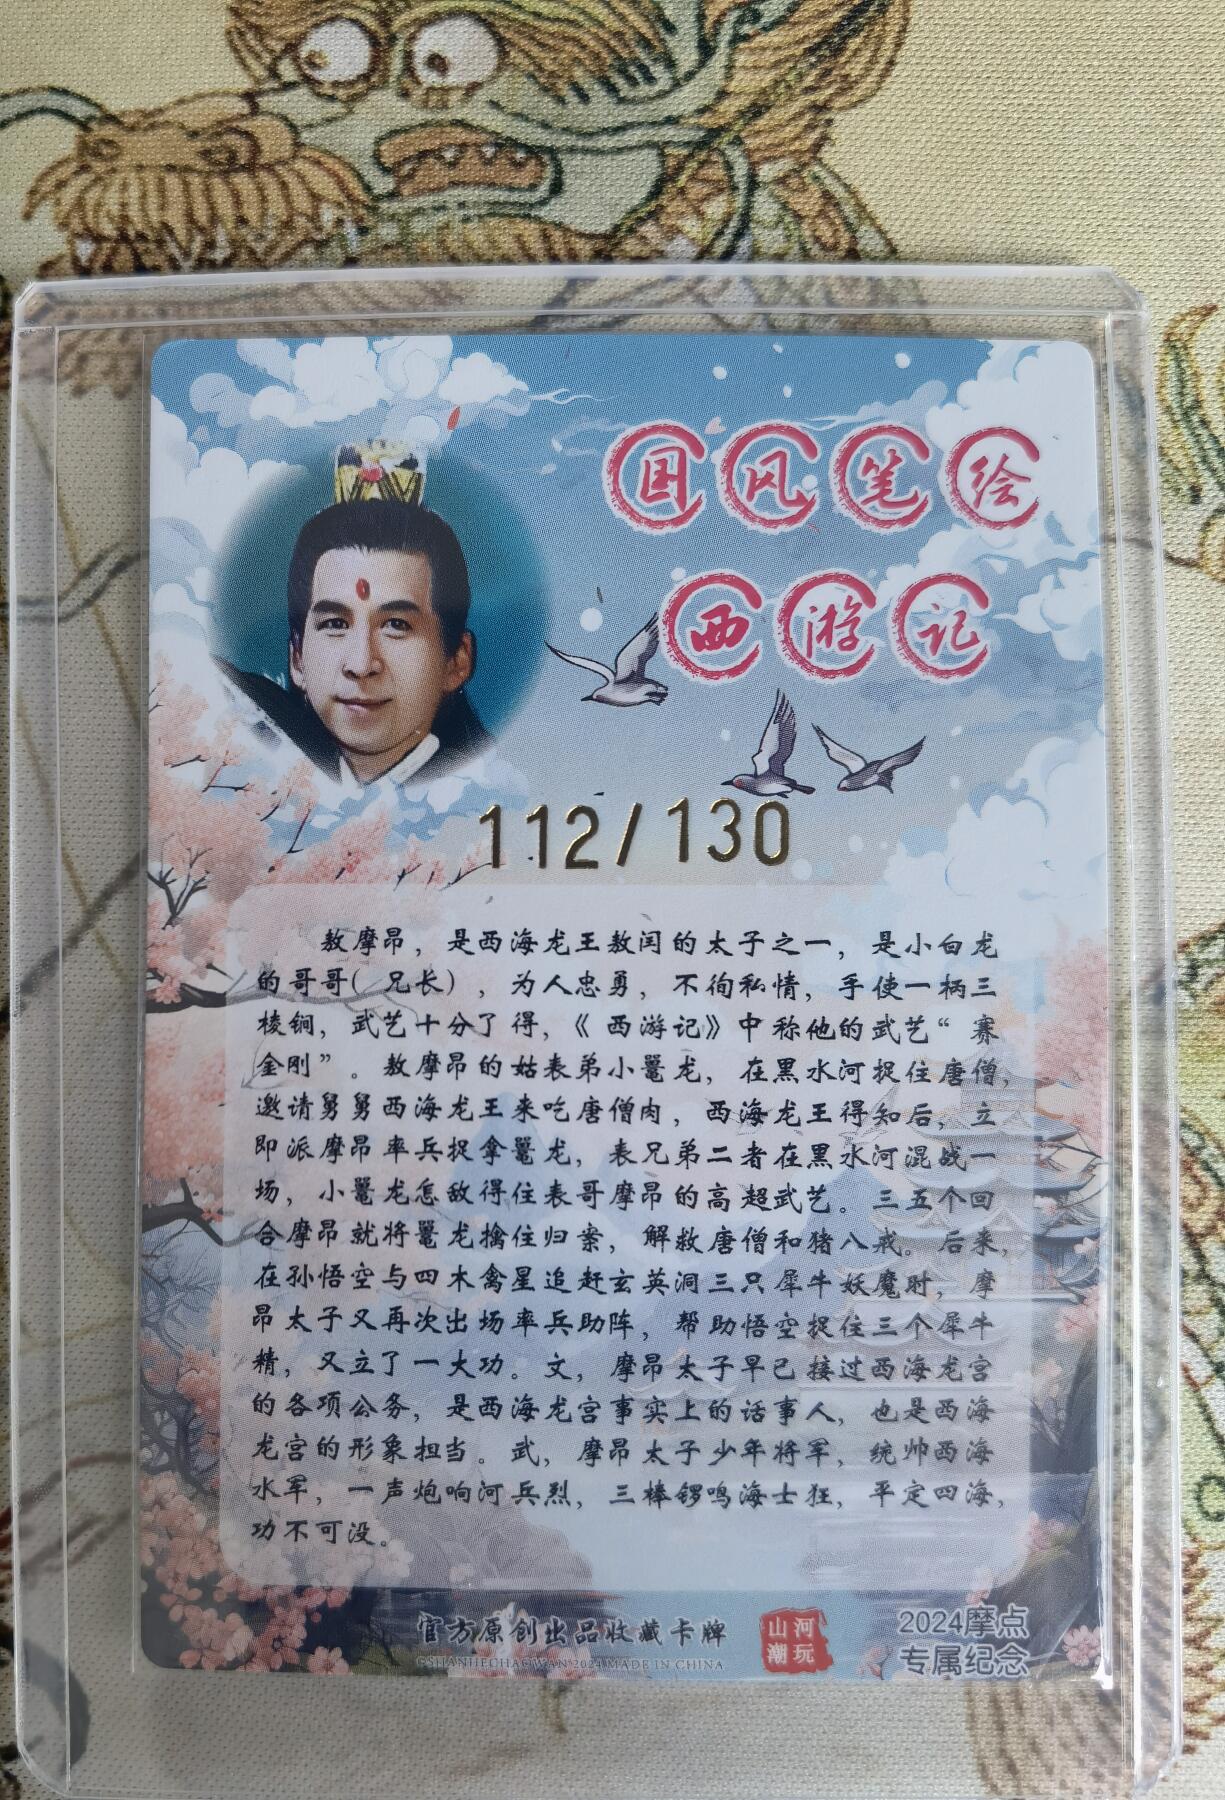 国风笔绘
西游记
112/130
敖摩昂，是西海龙王敖闰的太子之一，是小白龙
的哥哥(兄长)，为人忠勇，不徇私情，手使一柄三
棱锏，武艺十分了得，《西游记》中称他的武艺“赛
金刚”。敖摩昂的姑表弟小鼍龙，在黑水河捉住唐僧，
邀请舅舅西海龙王来吃唐僧肉，西海龙王得知后，立
即派摩昂率兵捉拿鼍龙，表兄弟二者在黑水河混战一
场，小鼍龙怎敌得住表哥摩昂的高超武艺。三五个回
合摩昂就将鼍龙擒住归案，解救唐僧和猪八戒。后来，
在孙悟空与四木禽星追赶玄英洞三只犀牛妖魔时，摩
昂太子又再次出场率兵助阵，帮助悟空捉住三个犀牛
精，又立了一大功。文，摩昂太子早已接过西海龙宫
的各项公务，是西海龙宫事实上的话事人，也是西海
龙宫的形象担当。武，摩昂太子少年将军，统帅西海
水军，一声炮响河兵烈，三棒锣鸣海士狂，平定四海，
功不可没。
官方原创出品收藏卡牌
©SHANHECHAOWAN 2024 MADE IN CHINA
山河
潮玩
2024摩点
专属纪念